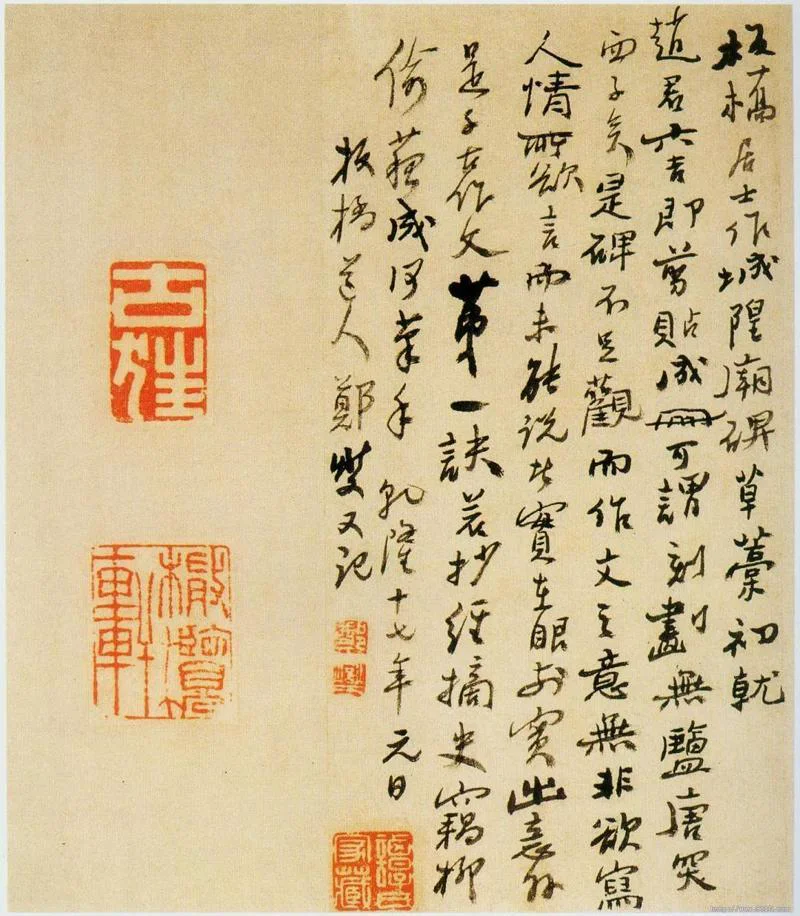 板橋居士作城隍廟碑草藁初就
趙君六吉即剪貼成冊可謂刻畫無鹽唐突
西子矣是碑不足觀而作文之意無非欲寫
人情所欲言而未能說此實在眼前實出意外
是千古作文第一訣若抄經摘史竊柳
偷蘇成何筆手乾隆十七年元日
板橋道人鄭燮又記
鄭燮